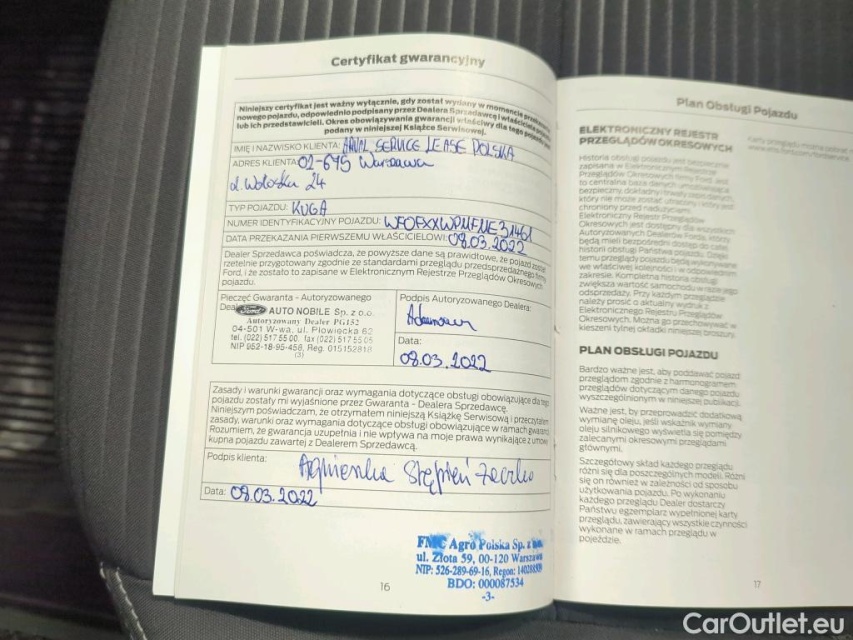 Certyfikat gwarancyjny
Niniejszy certyfikat jest ważny wyłącznie, gdy został wydany w momencie
nowego pojazdu, odpowiednio podpisany przez Dealera Sprzedawcę i właściciela
lub ich przedstawicieli. Okres obowiązywania gwarancji właściwy dla tego pojazdu
podany w niniejszej Książce Serwisowej.
IMIĘ I NAZWISKO KLIENTA: ARVAL SERVICE LEASE POLSKA
ADRES KLIENTA: 02-675 Warszawa
ul. Wołoska 24
TYP POJAZDU: KUGA
NUMER IDENTYFIKACYJNY POJAZDU: WF0FXXWPMFNE31461
DATA PRZEKAZANIA PIERWSZEMU WŁAŚCICIELOWI: 08.03.2022
Dealer Sprzedawca poświadcza, że powyższe dane są prawidłowe, że pojazd został
rzetelnie przygotowany zgodnie ze standardami przeglądu przedsprzedażnego firmy
Ford, i że zostało to zapisane w Elektronicznym Rejestrze Przeglądów Okresowych
pojazdu.
Pieczęć Gwaranta - Autoryzowanego
Dealera
Ford AUTO NOBILE Sp. z o.o.
Autoryzowany Dealer PG152
04-501 W-wa, ul. Płowiecka 62
tel. (022) 517 55 00, fax (022) 517 55 05
NIP 952-18-95-458, Reg. 015152818
(3)
Podpis Autoryzowanego Dealera:
Data:
08.03.2022
Zasady i warunki gwarancji oraz wymagania dotyczące obsługi obowiązujące dla tego
pojazdu zostały mi wyjaśnione przez Gwaranta - Dealera Sprzedawcę.
Niniejszym poświadczam, że otrzymałem niniejszą Książkę Serwisową i przeczytałem
zasady, warunki oraz wymagania dotyczące obsługi obowiązujące w ramach gwarancji.
Rozumiem, że gwarancja uzupełnia i nie wpływa na moje prawa wynikające z umowy
kupna pojazdu zawartej z Dealerem Sprzedawcą.
Podpis klienta: Agnieszka Stępień
Data: 08.03.2022
FMC Agro Polska Sp. z
ul. Złota 59, 00-120 Warszawa
NIP: 526-289-69-16, Regon:
BDO: 000087534
-3-
16
Plan Obsługi Pojazdu
ELEKTRONICZNY REJESTR
PRZEGLĄDÓW OKRESOWYCH
Historia obsługi pojazdu jest bezpiecznie
zapisana w Elektronicznym Rejestrze
Przeglądów Okresowych firmy Ford. Jest
to centralna baza danych umożliwiająca
bezpieczny, dokładny i trwały zapis danych,
który nie może zostać utracony i który jest
chroniony przed nadużyciami.
Elektroniczny Rejestr Przeglądów
Okresowych jest dostępny dla wszystkich
Autoryzowanych Dealerów Forda, którzy
będą mieli bezpośredni dostęp do całej
historii obsługi Państwa pojazdu. Dzięki
temu przeglądy pojazdu będą wykonywane
we właściwej kolejności i w odpowiednim
zakresie. Kompletna historia obsługi
zwiększa wartość samochodu w razie jego
odsprzedaży. Przy każdym przeglądzie
należy prosić o aktualny wydruk z
Elektronicznego Rejestru Przeglądów
Okresowych. Można go przechowywać w
kieszeni tylnej okładki niniejszej broszury.
PLAN OBSŁUGI POJAZDU
Bardzo ważne jest, aby poddawać pojazd
przeglądom zgodnie z harmonogramem
przeglądów dotyczącym danego pojazdu
wyszczególnionym w niniejszej publikacji.
Ważne jest, by przeprowadzić dodatkową
wymianę oleju, jeśli wskaźnik wymiany
oleju silnikowego wyświetla się pomiędzy
zalecanymi okresowymi przeglądami
głównymi.
Szczegółowy skład każdego przeglądu
różni się dla poszczególnych modeli. Różni
się on również w zależności od sposobu
użytkowania pojazdu. Po wykonaniu
każdego przeglądu Dealer dostarczy
Państwu egzemplarz wypełnionej karty
przeglądu, zawierający wszystkie czynności
wykonane w ramach przeglądu w
pojeździe.
17
CarOutlet.eu